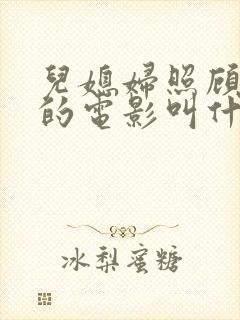 兒媳婦照顧
的電影叫什
冰梨蜜糖